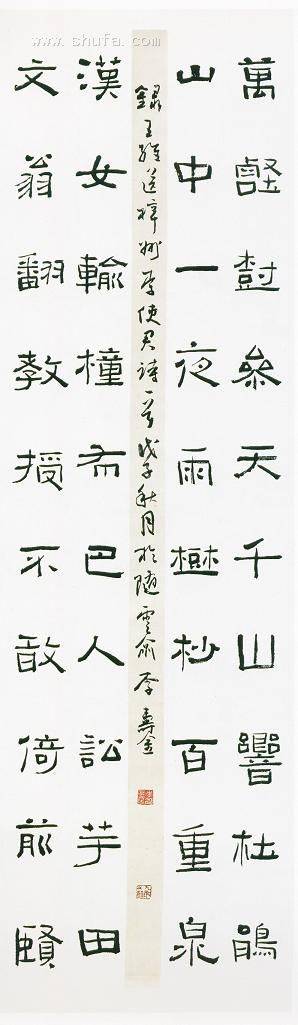 www.shufa.com
萬壑樹叅天千山響杜鵑
山中一夜雨樹杪百重泉
錄王維送梓州李使君詩一首戊子秋月於随雲 李
漢女輸橦布巴人訟芋田
文翁翻教授不敢倚前賢